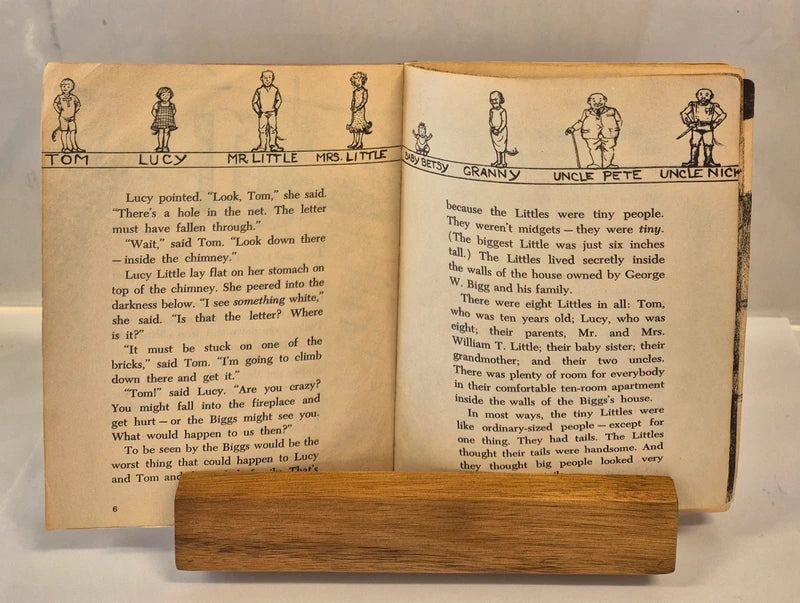 TOM LUCY MR. LITTLE MRS. LITTLE
Lucy pointed. "Look, Tom," she said.
"There's a hole in the net. The letter
must have fallen through."
"Wait," said Tom. "Look down there
— inside the chimney."
Lucy Little lay flat on her stomach on
top of the chimney. She peered into the
darkness below. "I see something white,"
she said. "Is that the letter? Where
is it?"
"It must be stuck on one of the
bricks," said Tom. "I'm going to climb
down there and get it."
"Tom!" said Lucy. "Are you crazy?
You might fall into the fireplace and
get hurt — or the Biggs might see you.
What would happen to us then?"
To be seen by the Biggs would be the
worst thing that could happen to Lucy
and Tom and
That's
6
BABY BETSY GRANNY UNCLE PETE UNCLE NICK
because the Littles were tiny people.
They weren't midgets — they were tiny.
(The biggest Little was just six inches
tall.) The Littles lived secretly inside
the walls of the house owned by George
W. Bigg and his family.
There were eight Littles in all: Tom,
who was ten years old; Lucy, who was
eight; their parents, Mr. and Mrs.
William T. Little; their baby sister; their
grandmother; and their two uncles.
There was plenty of room for everybody
in their comfortable ten-room apartment
inside the walls of the Biggs's house.
In most ways, the tiny Littles were
like ordinary-sized people — except for
one thing. They had tails. The Littles
thought their tails were handsome. And
they thought big people looked very